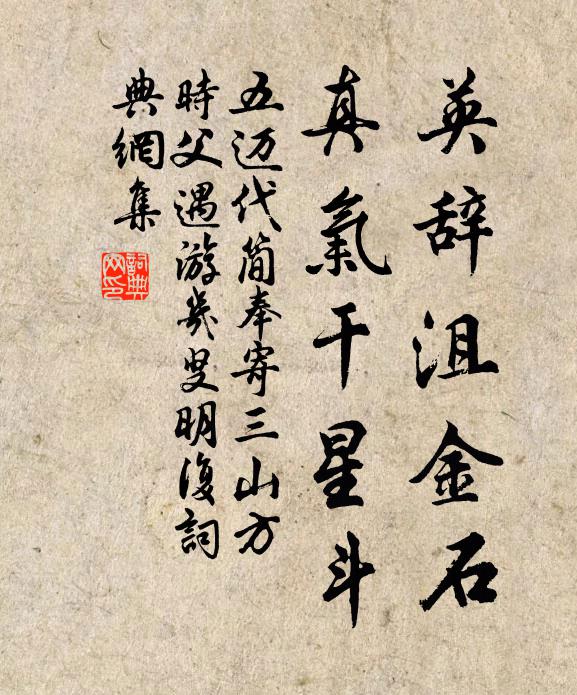 英辞沮金石
真氣干星斗
五迈代简奉寄三山方
時父遇游幾叟明復詞
典網集
詞典网印